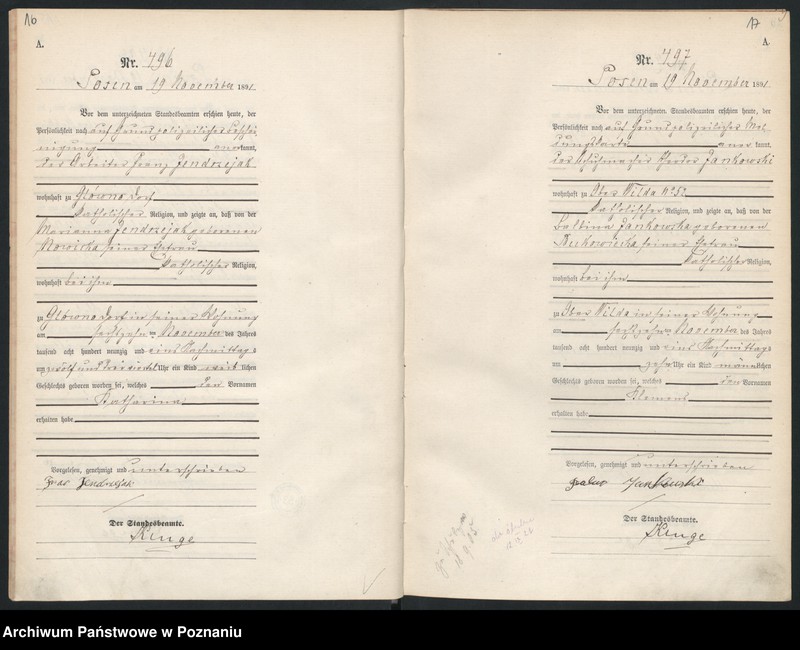 16
A.
Nr. 496
Posen am 19 November 1891
Vor dem unterzeichneten Standesbeamten erschien heute, der
Persönlichkeit nach auf Grund polizeilicher Beschei
nigung anerkannt,
der Arbeiter Franz Jendrzejak
wohnhaft zu Glówno Dorf
katholischer Religion, und zeigte an, daß von der
Marianna Jendrzejak geborenen
Nowicka seiner Ehefrau
katholischer Religion,
wohnhaft bei ihm
zu Glówno Dorf in seiner Wohnung
am sechszehn ten November des Jahres
tausend acht hundert neunzig und eins Nachmittags
um zwölf und drei viertel Uhr ein Kind weib lichen
Geschlechts geboren worden sei, welches den Vornamen
Katharina
erhalten habe
Vorgelesen, genehmigt und unterschrieben
Jendrzejak
Der Standesbeamte.
17
A
Nr. 497
Posen am 19 November 1891
Vor dem unterzeichneten Standesbeamten erschien heute, der
Persönlichkeit nach auf Grund polizeilicher Mel
dungskarte aner kannt,
der Schuhmacher Theodor Jankowski
wohnhaft zu Ober Wilda No 52
katholischer Religion, und zeigte an, daß von der
Balbina Jankowska geborenen
seiner Ehefrau
katholischer Religion,
wohnhaft bei ihm
zu Ober Wilda in seiner Wohnung
am sechszehn ten November des Jahres
tausend acht hundert neunzig und eins Nachmittags
um zehn Uhr ein Kind männlichen
Geschlechts geboren worden sei, welches den Vornamen
Klemens
erhalten habe
Vorgelesen, genehmigt und unterschrieben
Jankowski
Der Standesbeamte.
Archiwum Państwowe w Poznaniu